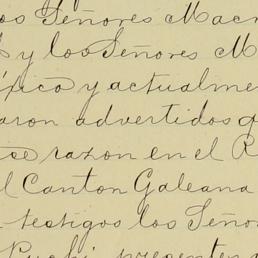 os Señores Mac
y los Señores M
xico y actualme
aron advertidos q
se razon en el R
l Canton Galeana
testigos los Seño
Puchi, presentes